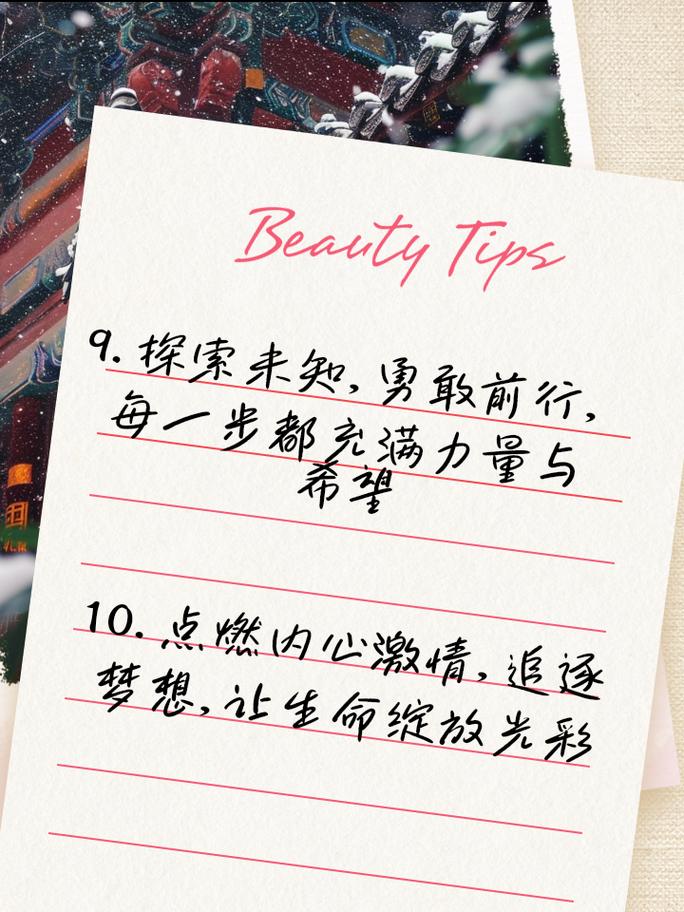 Beauty Tips
9. 探索未知，勇敢前行，
每一步都充满力量与
希望
10. 点燃内心激情，追逐
梦想，让生命绽放光彩